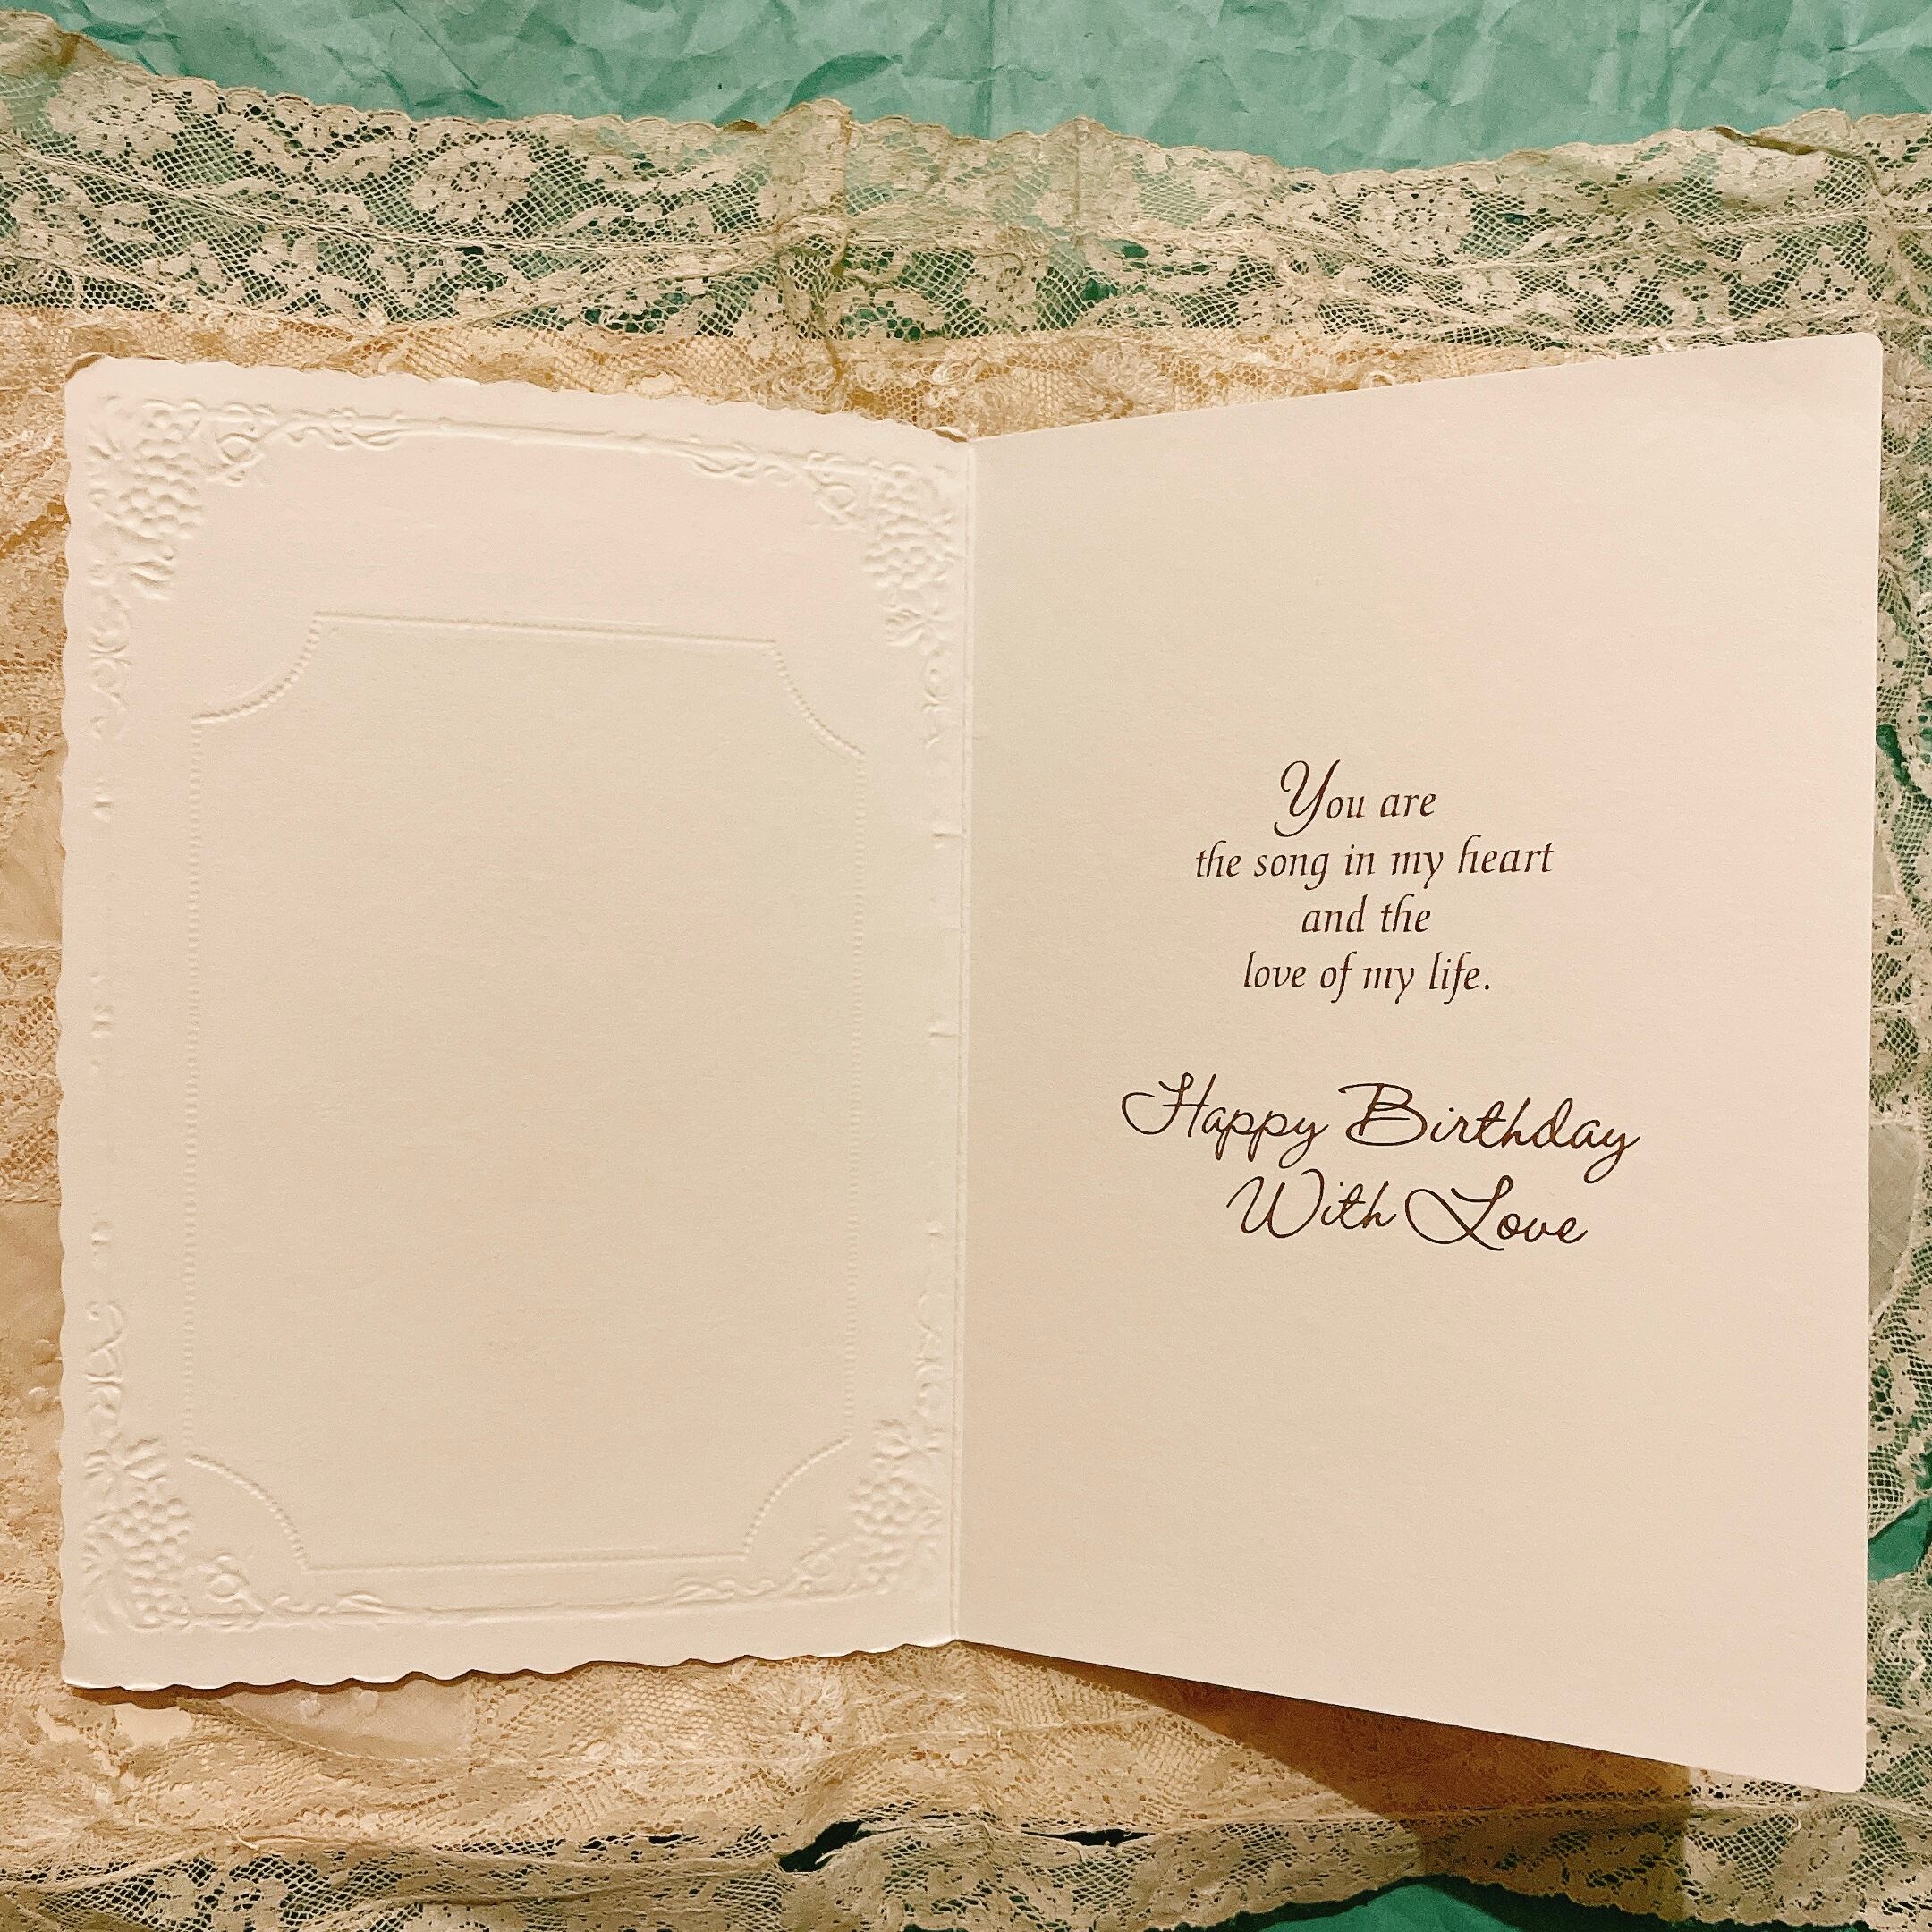 You are
the song in my heart
and the
love of my life.
Happy Birthday
With Love